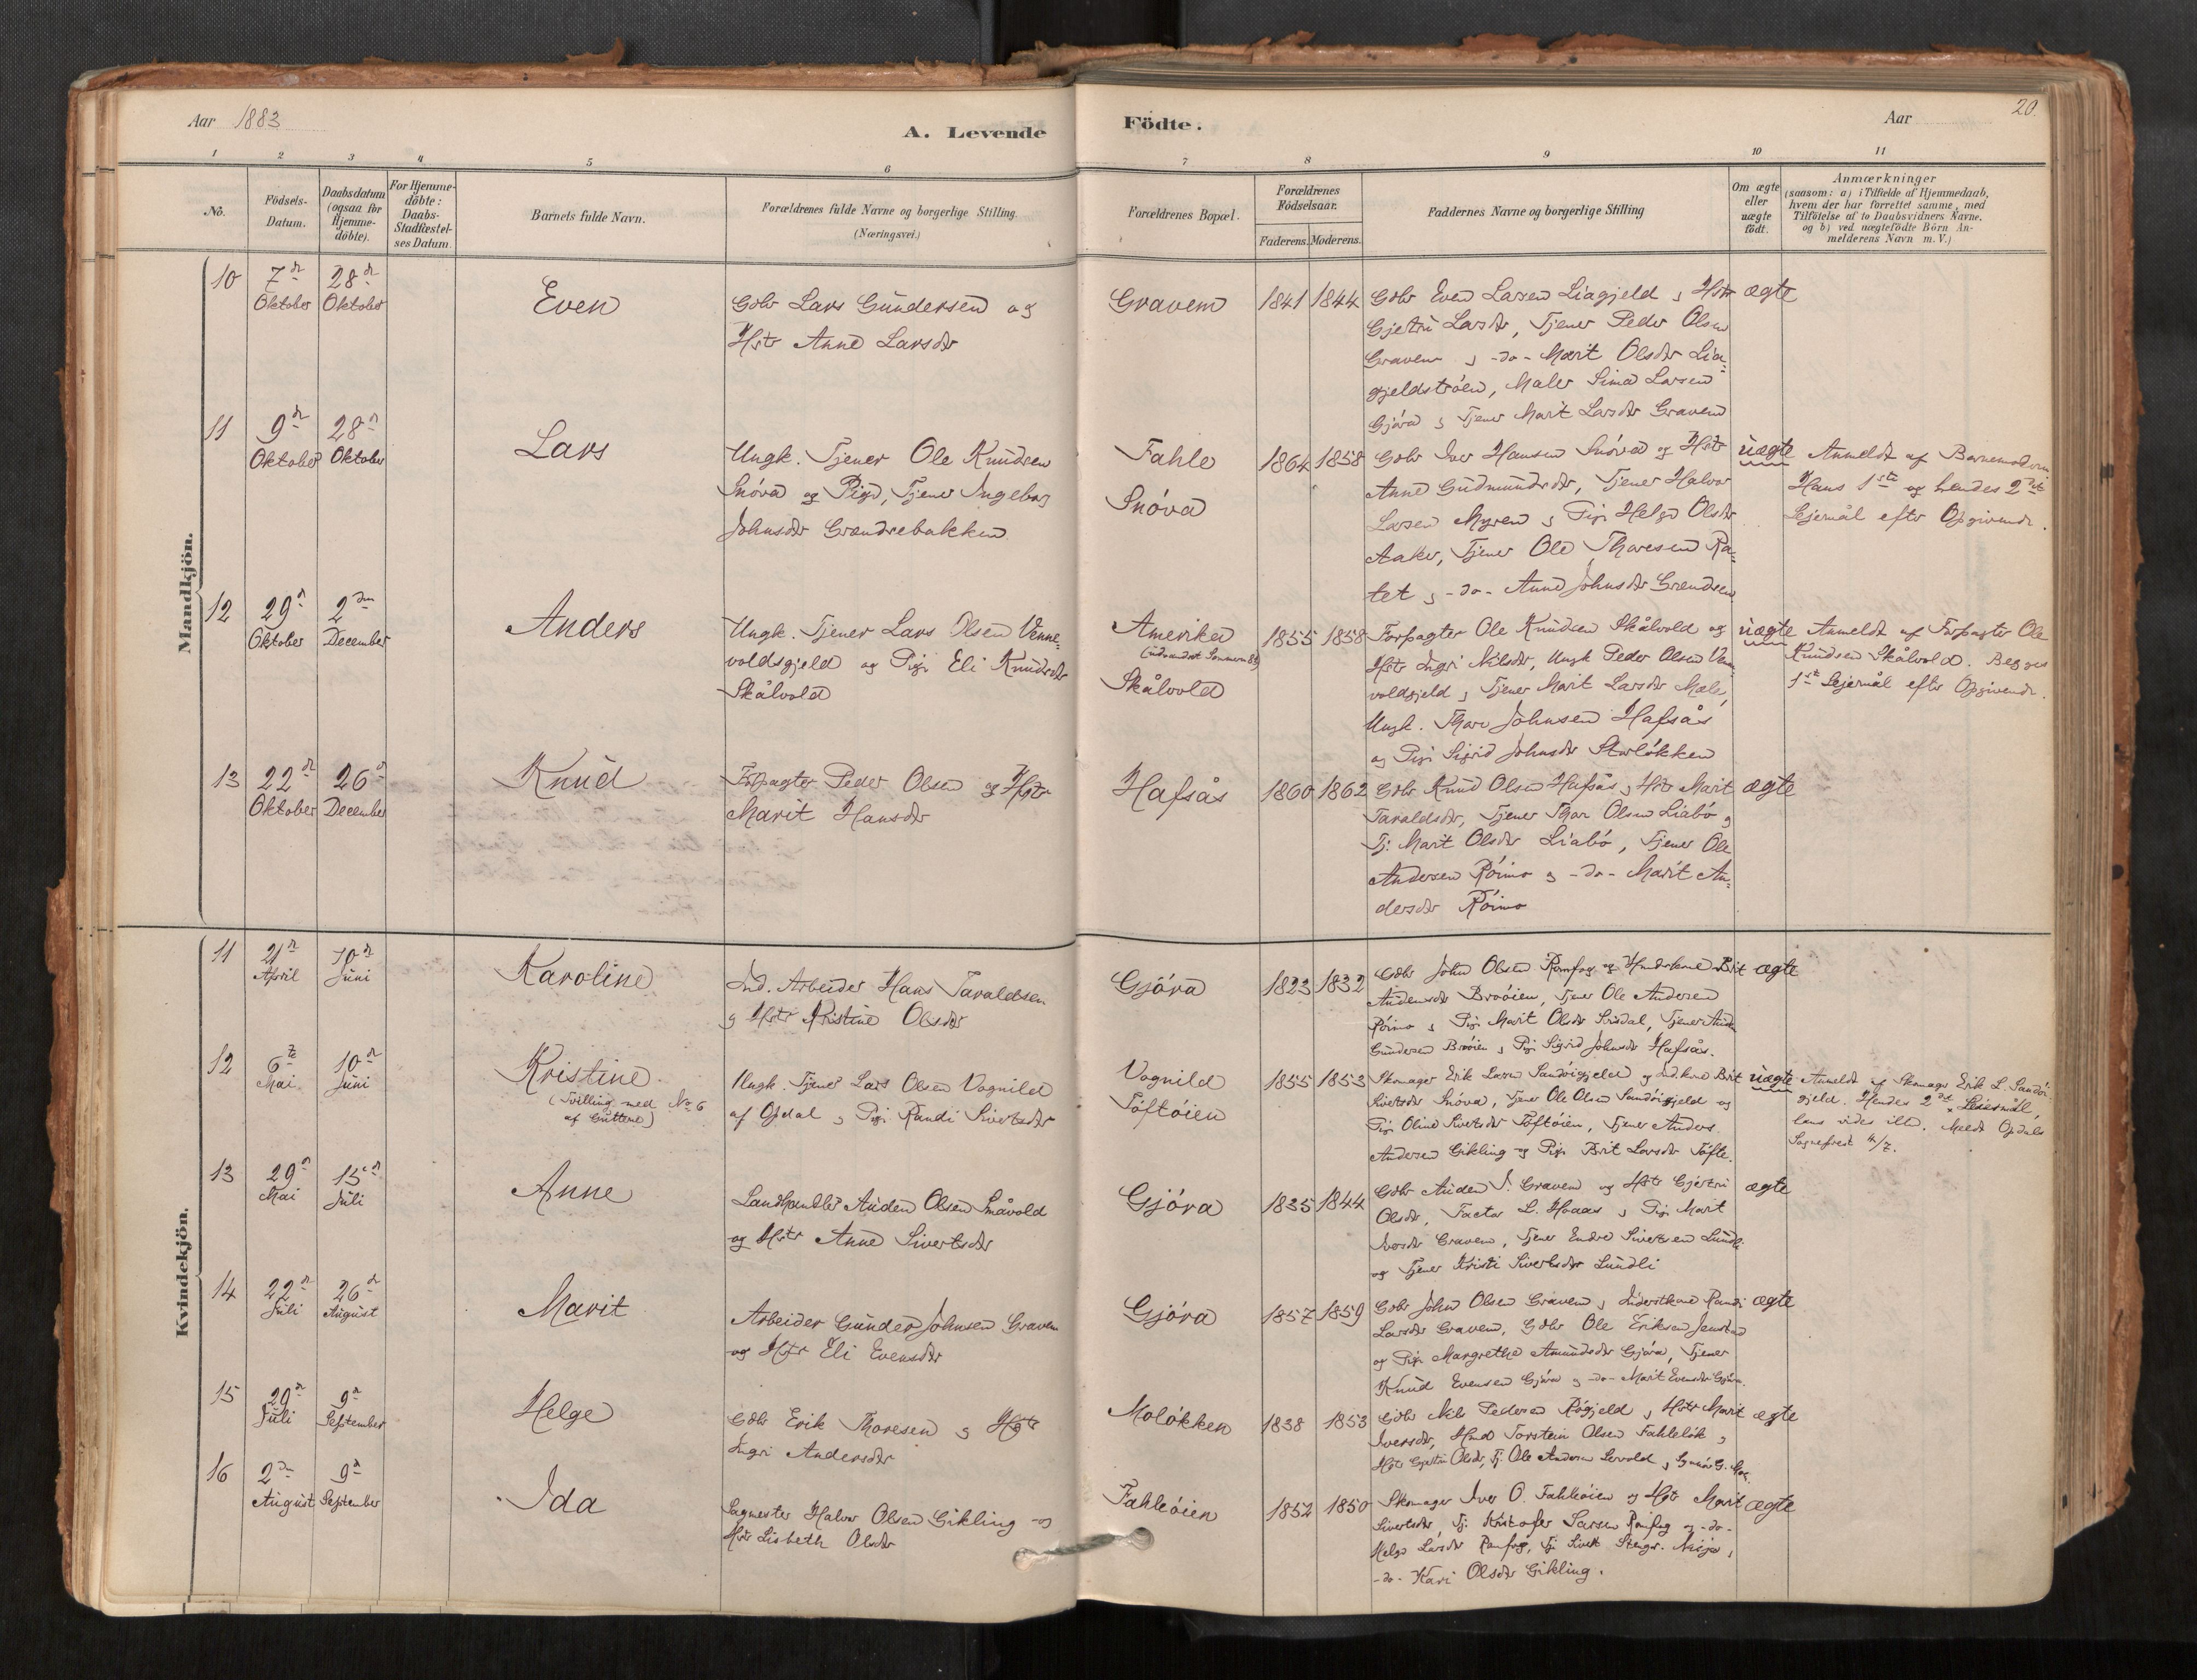 Aar 1883
A. Levende Födte.
Aar
20.
1 2 3 4 5 6 7 8 9 10 11
No.
Födsels-
Datum.
Daabsdatum
(ogsaa for
Hjemme-
döbte).
For Hjemme-
döbte:
Daabs-
Stadfæstel-
ses Datum.
Barnets fulde Navn.
Forældrenes fulde Navne og borgerlige Stilling.
(Næringsvei.)
Forældrenes Bopæl.
Forældrenes
Födselsaar.
Faderens. Moderens.
Faddernes Navne og borgerlige Stilling
Om ægte
eller
uægte
födt.
Anmærkninger
(saasom: a) i Tilfælde af Hjemmedaab,
hvem der har forrettet samme, med
Tilföielse af to Daabsvidners Navne.
og b) ved uægtefödte Börn An-
melderens Navn m. V.)
Mandkjön.
10
7de
Oktober
28de
Oktober
Even
Gdbr Lars Gundersen og
Hstr Anne Larsdr
Gravem
1841 1844
Gdbr Even Larsen Liagjeld og Hstr
Gjetru Larsdr, Tjener Peder Olsen
Gravem og -do- Marit Olsdr Lia-
gjeldstrøen, Maler Larsen
Gjöra og Tjener Marit Larsdr Gravem
ægte
11
9de
Oktober
28de
Oktober
Lars
Ungk. Tjener Ole Knudsen
Snöva og Pige, Tjener Ingeborg
Johnsdr Grændsebakken
Fahle
Snöva
1864 1858
Gdbr Iver Hansen Snöva og Hstr
Anne Gudmundsdr, Tjener Halvor
Larsen Myren og Pige Helga Olsdr
Aaker, Tjener Ole Thoresen Ra-
tet og -do- Anne Johnsdr Grændsen
uægte
Anmeldt af Barnemoderen
Hans 1ste og hendes 2det
Leiermål efter Opgivende.
12
29de
Oktober
2den
December
Anders
Ungk. Tjener Lars Olsen Venne-
voldsgjeld og Pige Eli Knudsdr
Skålvold
Amerika
(udvandret Sommeren 83)
Skålvold
1855 1858
Forpagter Ole Knudsen Skålvold og
Hstr Ingri Nilsdr, Ungk Peder Olsen Venne-
voldsgjeld og Tjener Marit Larsdr Mæle,
Ungk. Thore Johnsen Hafsås
og Pige Sigrid Johnsdr Storløkken
uægte
Anmeldt af Forpagter Ole
Knudsen Skålvold. Begges
1ste Leiermål efter Opgivende.
13
22de
Oktober
26de
December
Knud
Forpagter Peder Olsen og Hstr
Marit Hansdr
Hafsås
1860 1862
Gdbr Knud Olsen Hafsås og Hstr Marit
Taraldsdr, Tjener Thor Olsen Liabö og
Tj. Marit Olsdr Liabö, Tjener Ole
Andersen Röimo og -do- Marit An-
dersdr Röimo
ægte
Kvindekjön.
11
21de
April
10de
Juni
Karoline
Ind. Arbeider Hans Taraldsen
og Hstr Kristine Olsdr
Gjöra
1823 1832
Gdbr John Olsen Romfog og Brit
Audensdr Brøøien, Tjener Ole Andersen
Röimo og Pige Marit Olsdr, Tjener
Gundersen Brøøien og Pige Sigrid Johnsdr Hafsås.
ægte
12
6te
Mai
10de
Juni
Kristine
(Tvilling med No 6
af Guttene)
Ungk. Tjener Lars Olsen Vognild
af Opdal og Pige Randi Sivertsdr
Vognild
Töftöien
1855 1853
Skomager Erik Larsen Sandöigjeld og Ind.kone Brit
Sivertsdr Snöva, Tjener Ole Olsen Sandöigjeld og
Pige Oline Sivertsdr Töftöien, Tjener Anders
Andersen Gikling og Pige Brit Larsdr Töfte.
uægte
Anmeldt af Skomager Erik L. Sandöi-
gjeld. Hendes 2det Leiermål,
hans vides ikke. Meldt Opdals
Sogneprest
13
29de
Mai
15de
Juli
Anne
Landhandler Auden Olsen Småvold
og Hstr Anne Sivertsdr
Gjöra
1835 1844
Gdbr Auden I. Gravem og Hstr Gjertru
Olsdr, Factor L. Hoaas og Pige Marit
Iversdr Gravem, Tjener Endre Sivertsen Lundli
og Tjener Kristi Sivertsdr Lundli
ægte
14
22de
Juli
26de
August
Marit
Arbeider Gunder Johnsen Gravem
og Hstr Eli Evensdr
Gjöra
1857 1859
Gdbr John Olsen Gravem og Inderstkone Randi
Larsdr Gravem, Gdbr Ole Eriksen Jenstad
og Pige Margrethe Amundsdr Gjöra, Tjener
Knud Evensen Gjöra og -do- Marit Evensdr Gjöra.
ægte
15
29de
Juli
9de
September
Helge
Gdbr Erik Thoresen og Hstr
Ingri Andersdr
Moløkken
1838 1853
Gdbr Nils Pedersen Rögjeld og Hstr Marit
Iversdr, Hmd Torstein Olsen Fahleløk og
Hstr Gjertru Olsdr, Tj. Ole Andersen
ægte
16
2den
August
9de
September
Ida
Sagmester Halvor Olsen Gikling og
Hstr Lisbeth Olsdr
Fahleöien
1852 1850
Skomager Iver O. Fahleöien og Hstr Marit
Sivertsdr, Tj. Kristofer Larsen Romfog og -do-
Helga Larsdr Romfog, Tj. Sivert
-do- Kari Olsdr Gikling.
ægte